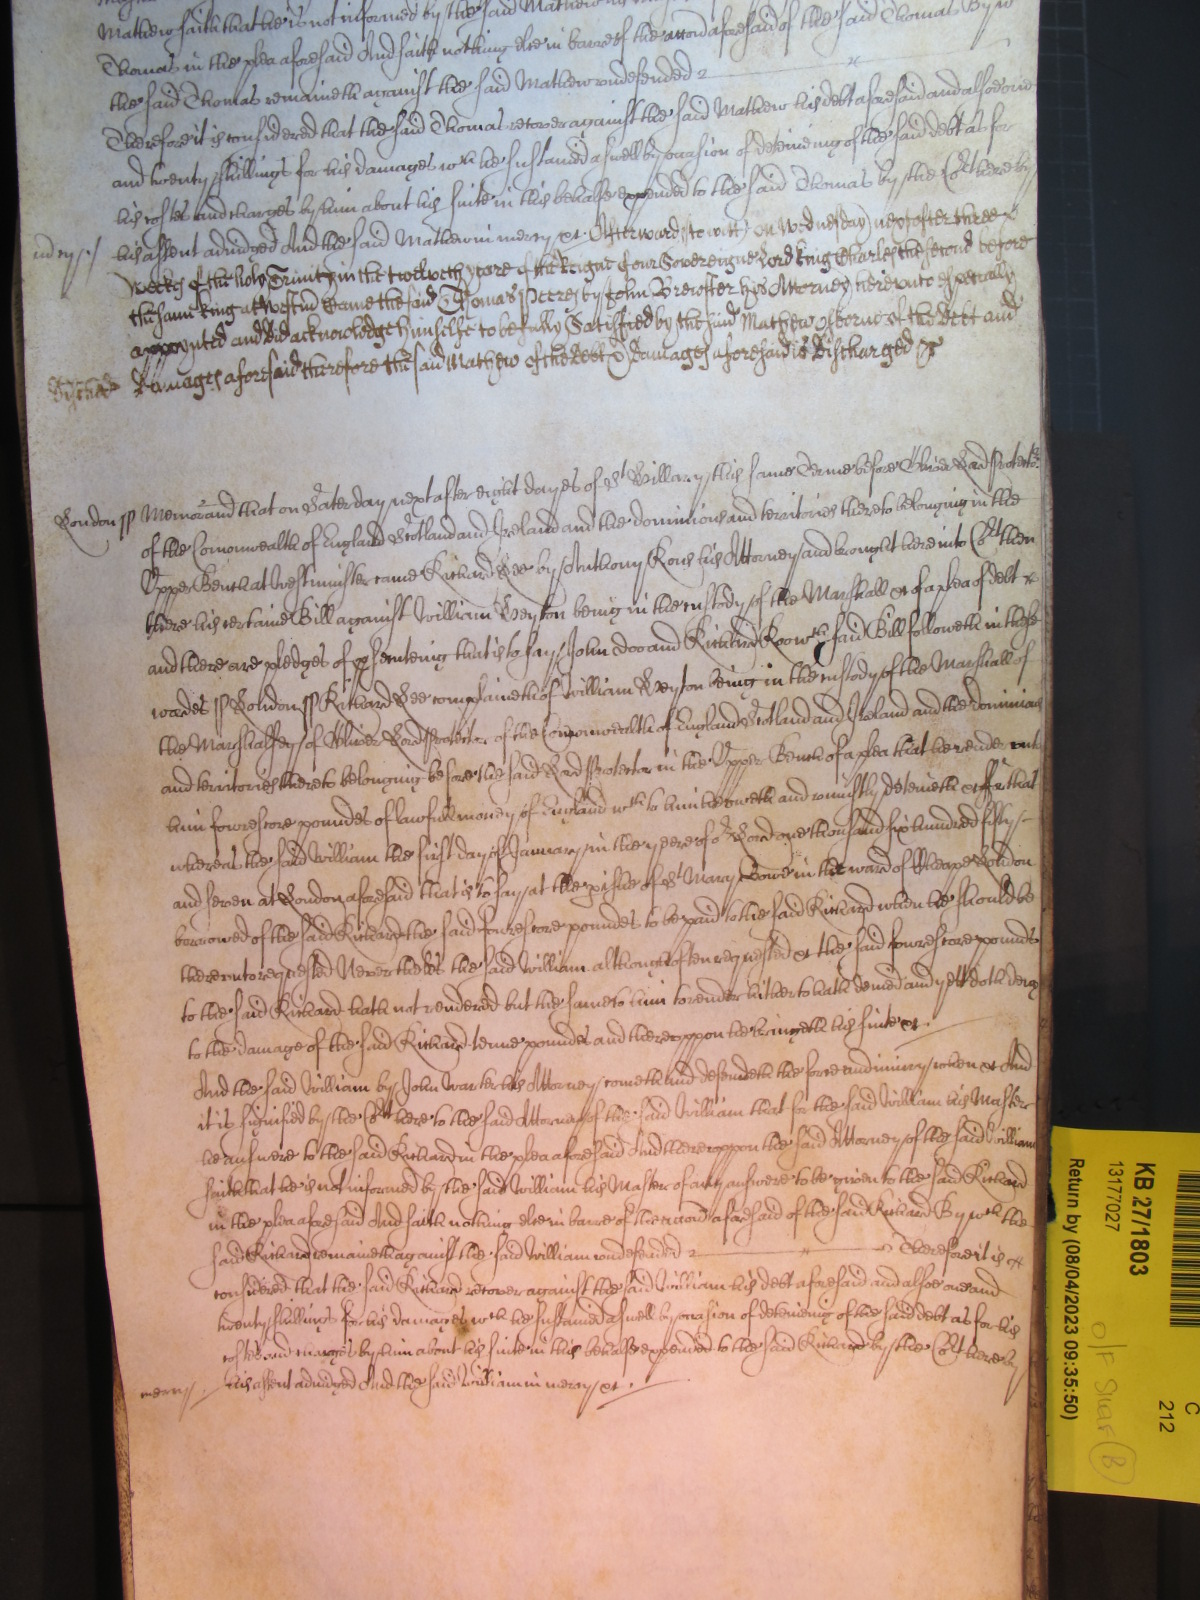 Mathew saith that he is not informed by the said Mathew his
Thomas in the plea aforesaid And saith nothing else in barre of the accon aforesaid of the said Thomas By wch
the said Thomas remaineth against the said Mathew undefended
Therefore it is considered that the said Thomas recover against the said Mathew his debt aforesaid and alsoe one
and twenty shillings for his damages wch he sustained aswell by occasion of deteineing of the said debt as for
his costes and charges by him about his suite in this behalfe expended to the said Thomas by the Cort here by
his assent adiudged And the said Mathew in mercy &c. Afterwards (to witt) on Wednesday next after three
mercy
weekes of the holy Trinity in the twelveth yeare of the reigne of our Sovereigne Lord King Charles the second before
the same king at Westmr came the said Thomas Peeres by John Brewster his Attorney hereunto especially
appoynted and did acknowledge himselfe to be fully Satisfied by the said Mathew Osborne of the Debt and
Damages aforesaid therefore the said Mathew of the debt & Damages aforesaid is Discharged &c
London ss Memorand that on Saterday next after eight dayes of St Hillary this same Terme before Oliver Lord Protector
of the Comonwealth of England Scotland and Ireland and the dominions and territories thereto belonging in the
Upper Bench at Westminster came Richard Lee by Anthony Rous his Attorney and brought here into Cort then
there his certaine Bill against William Leyton being in the custody of the Marshall &c of a plea of debt
and there are pledges of psecuteing that is to say John Doo and Richard Roo wch said Bill followeth in these
wordes ss London ss Richard Lee complaineth of William Leyton being in the custody of the Marshall of
the Marshalsey of Oliver Lord Protector of the Comonwealth of England Scotland and Ireland and the dominions
and territories thereto belonging before the said Lord Protector in the Upper Bench of a plea that he render unto
him fowrescore poundes of lawfull money of England wch to him he oweth and uniustly deteineth &c ffor that
whereas the said William the first day of January in the yeere of or Lord one thousand six hundred fifty
and seven at London aforesaid that is to say at the pishe of St Mary Bowe in the ward of Cheape London
borrowed of the said Richard the said fowrescore poundes to be paid to the said Richard when he should be
thereunto requested Neverthelesse the said William although often requested &c the said fowrescore poundes
to the said Richard hath not rendered but the same to him to render hitherto hath denied and yett doth deny
to the damage of the said Richard tenne poundes and thereuppon he bringeth his suite &c.
And the said William by John Warter his Attorney cometh and defendeth the force and iniury when &c And
it is signified by the Cort here to the said Attorney of the said William that for the said William his Master
he answere to the said Richard in the plea aforesaid And thereuppon the said Attorney of the said William
saith that he is not informed by the said William his Master of any answere to be given to the said Richard
in the plea aforesaid And saith nothing else in barre of the accon aforesaid of the said Richard By wch the
said Richard remaineth against the said William undefended Therefore it is
considered that the said Richard recover against the said William his debt aforesaid and alsoe one and
twenty shillings for his damages wch he sustained aswell by occasion of deteineing of the said debt as for his
costes and charges by him about his suite in this behalfe expended to the said Richard by the Cort here by
mercy his assent adiudged And the said William in mercy &c.
KB 27/1803
13177027
Return by (08/04/2023 09:35:50)
C
212
B